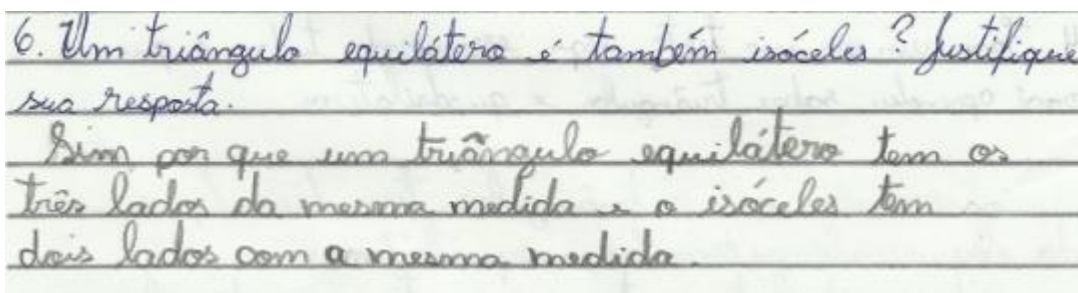 6. Um triângulo equilátero é também isóceles? Justifique
sua resposta.
Sim por que um triângulo equilátero tem os
três lados da mesma medida e o isóceles tem
dois lados com a mesma medida.